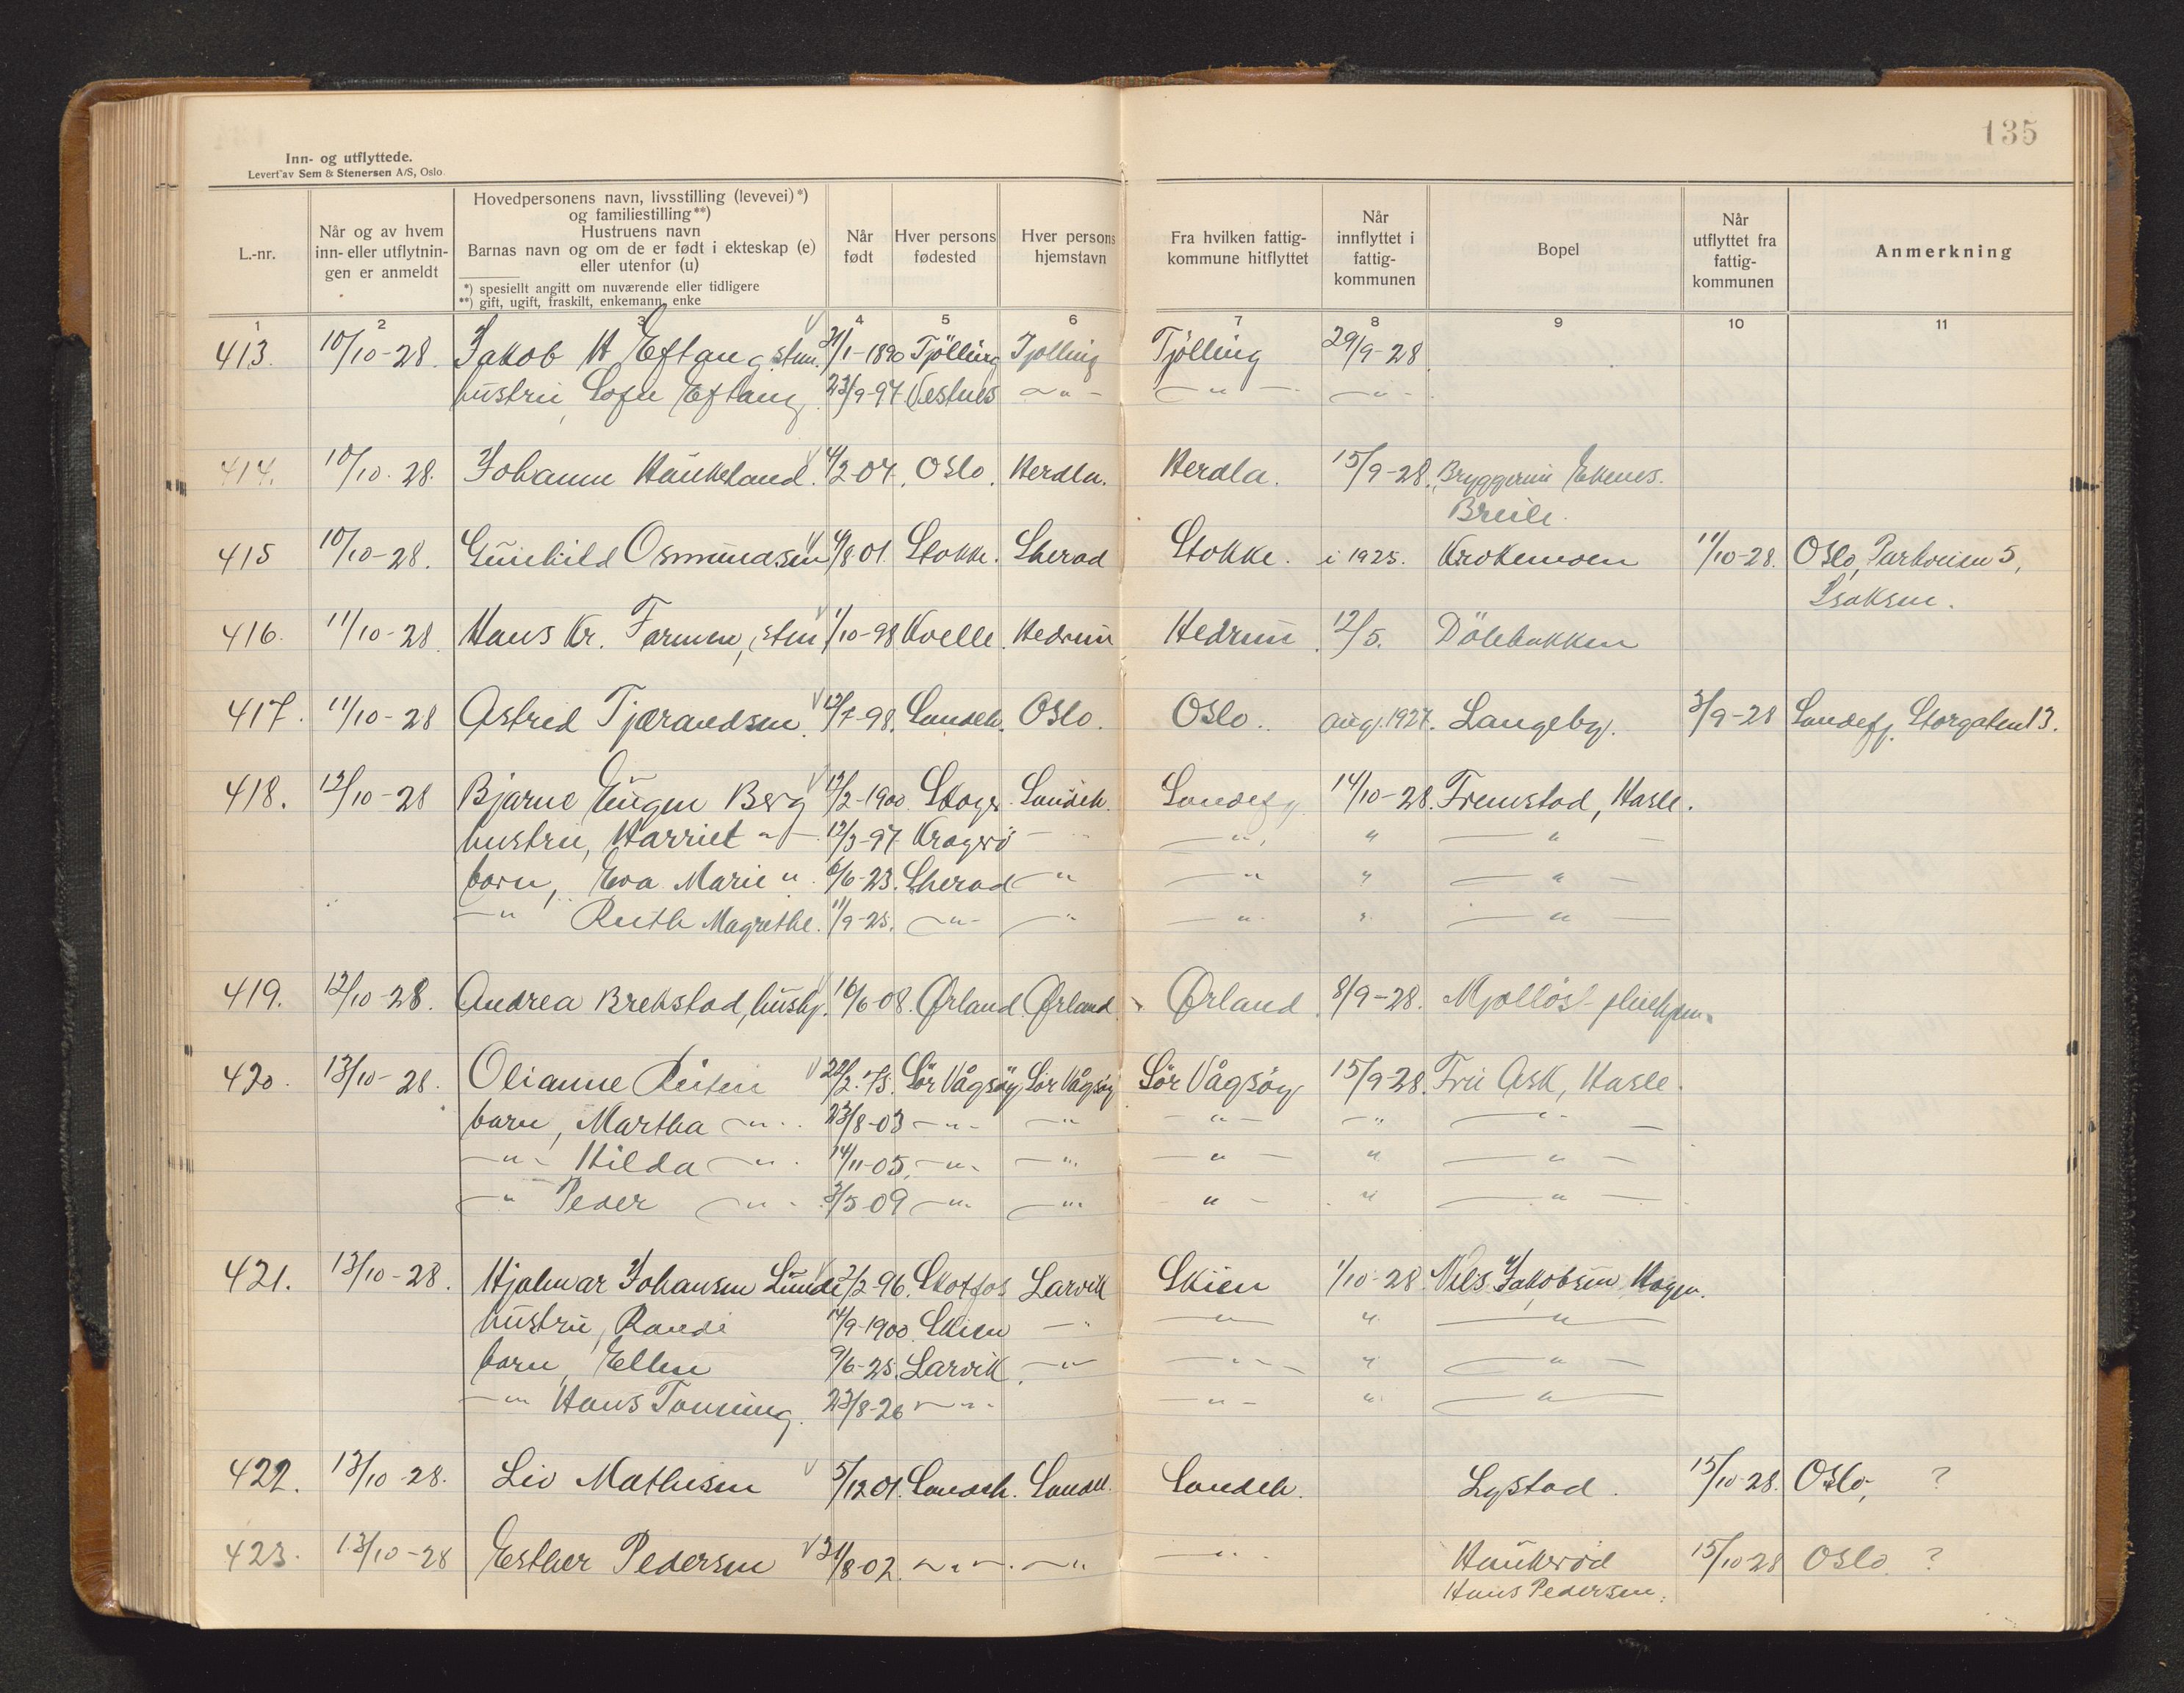 135
Inn- og utflyttede.
Levert av Sem & Stenersen A/S, Oslo.
L.-nr.
Når og av hvem inn- eller utflytnin- gen er anmeldt
Hovedpersonens navn, livsstilling (levevei) *)
og familiestilling **)
Hustruens navn
Barnas navn og om de er født i ekteskap (e)
eller utenfor (u)
*) spesielt angitt om nuværende eller tidligere
**) gift, ugift, fraskilt, enkemann, enke
Når født
Hver persons fødested
Hver persons hjemstavn
Fra hvilken fattig- kommune hitflyttet
Når innflyttet i fattig- kommunen
Bopel
Når utflyttet fra fattig- kommunen
Anmerkning
1 2 3 4 5 6 7 8 9 10 11
413. 10/10-28. Jakob H Eftang, 1-1890 Tjölling Tjölling Tjölling 29/9-28
hustru, Eftang 23/9-97 Vestnes -"- -"- -"-
414. 10/10-28. Johann Haukeland. 4/2-07. Oslo. Herdla. Herdla. 15/9-28. Ekenes.
Breili.
415 10/10-28. Gunhild Osmundsen 4/8 01. Stokke. Sherad Stokke. i 1925. Krokemoen 11/10-28. Oslo, Parkveien 5,
Isaksen.
416. 11/10-28. Hans Kr. Farmen, 1/10-98 Kvelle. Hedrum Hedrum 12/5. Dölebakken
417. 11/10-28 Astrid Tjærandsen. 12/7-98. Sandeh. Oslo. Oslo. aug. 1927. Langeby. 3/9-28 Sandefj. Storgaten 13.
418. 12/10-28 Bjarne Eugen Berg 12/2-1900. Skoger. Sandeh. Sandefj 14/10-28. Fremstad, Hasle.
hustru, Harriet -"- 12/3-97. Kragerö - " -"- " -"-
barn, Eva Marie " 6/6-23. Sherad -"- -"- " -"-
-"- Ruth Magrethe. 11/9-25. -"- -"- -"- " -"-
419. 12/10-28. Andrea Brekstad, hushj. 16/6-08. Ørland. Ørland. Ørland 8/9-28. Mjølløst
420. 13/10-28. Olianne 22/2-75. Sör Vågsöy Sör Vågsöy Sör Vågsöy 15/9-28. Fru Ask, Hasle.
barn, Martha -"- 23/8-03 -"- -"- -"- -"- -"-
-"- Hilda -"- 14/11-05. -"- -"- -"- " -"-
-" Peder -"- 3/5-09 -"- -"- " - " -"-
421. 13/10-28. Hjalmar Johansen Lunde 2/2-96. Skotfos Larvik Skien 1/10-28. Nils Jakobsen, Hagen.
hustru, Randi 14/9-1900. Skien -"- -"- " -"-
barn, Ellen 9/6-25. Larvik. -"- -"- " -"-
-"- Hans Tonning. 23/8-26 -"- -"- " -"-
422. 13/10-28. Liv Mathisen 5/12 01. Sandeh. Sandeh. Sandeh. Lystad. 15/10-28. Oslo, ?
423. 13/10-28 Esther Pedersen 31/8-02. -"- -"- -"- Haukeröd 15/10-28 Oslo. ?
Hans Pedersen.